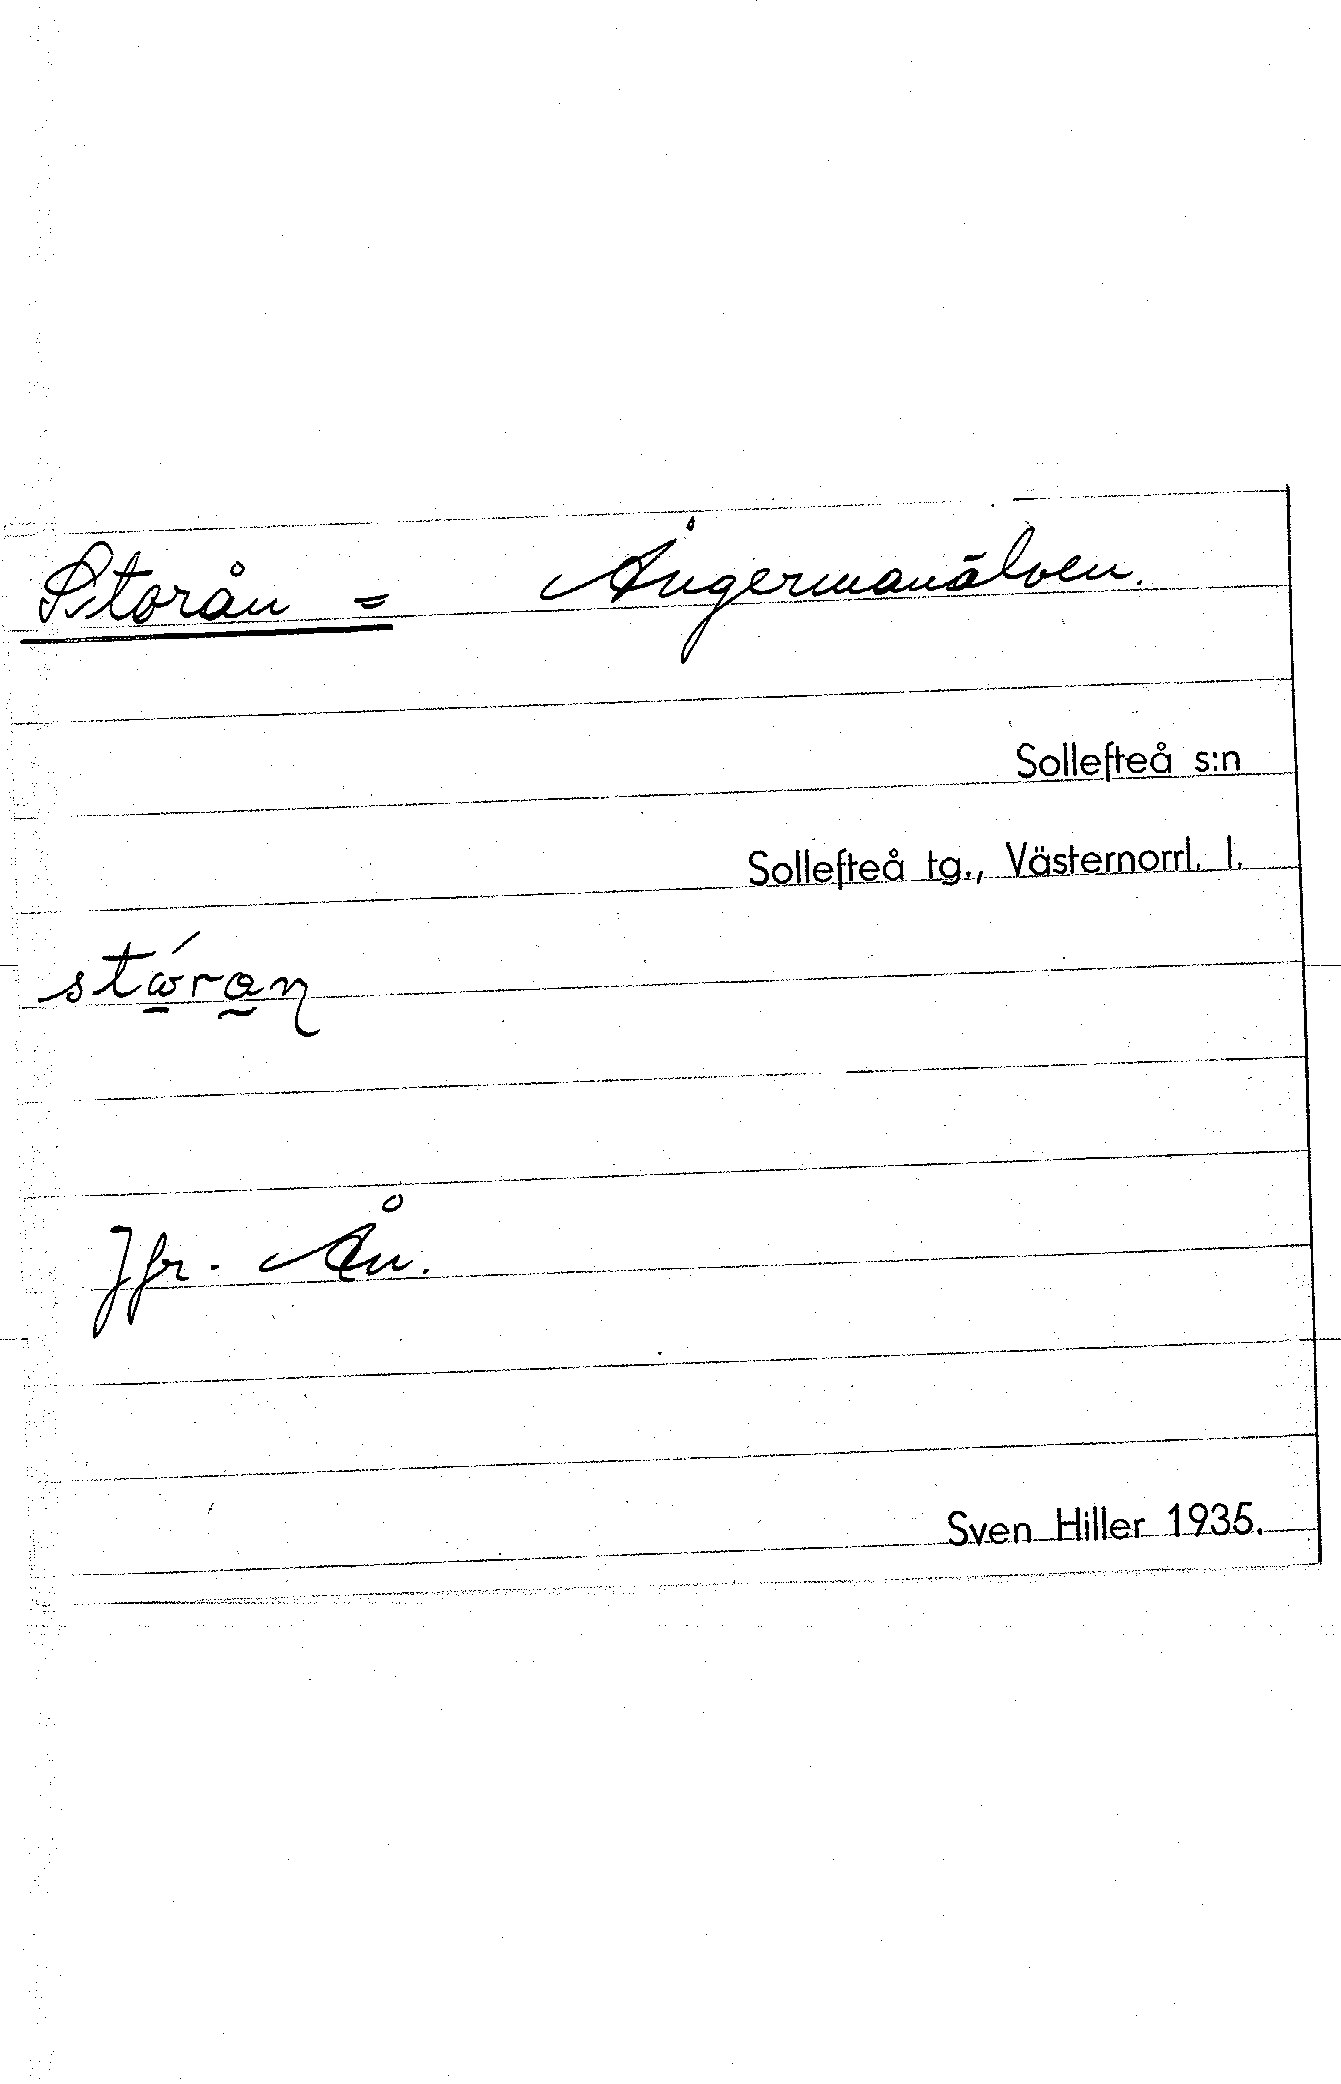 Storån = Ångermanälven.
Sollefteå s:n
Sollefteå tg., Västernorrl. l.
Jfr. Ån.
Sven Hiller 1935.